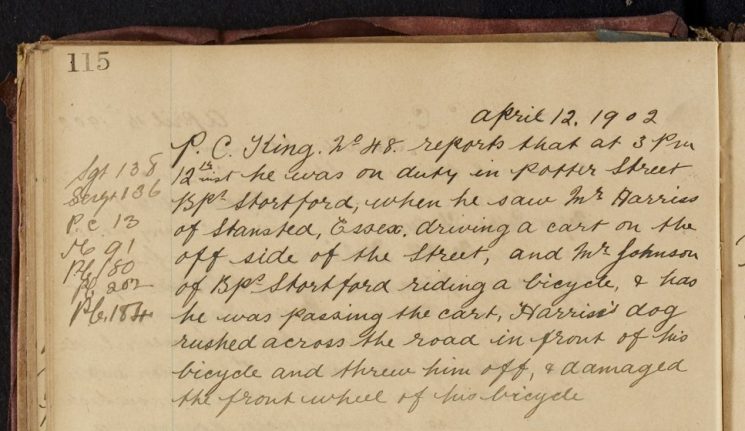 115
April 12. 1902
P. C. King. No 48. reports that at 3 Pm
12th inst he was on duty in Potter Street
BPs Stortford, when he saw Mr Harriss
of Stansted, Essex. driving a cart on the
off side of the Street, and Mr Johnson
of BPs Stortford riding a bicycle, & has
he was passing the cart, Harriss's dog
rushed across the road in front of his
bicycle and threw him off, & damaged
the front wheel of his bicycle
Sgt 138
Sergt 136
P.c 13
91
Pc 80
202
Pc. 184